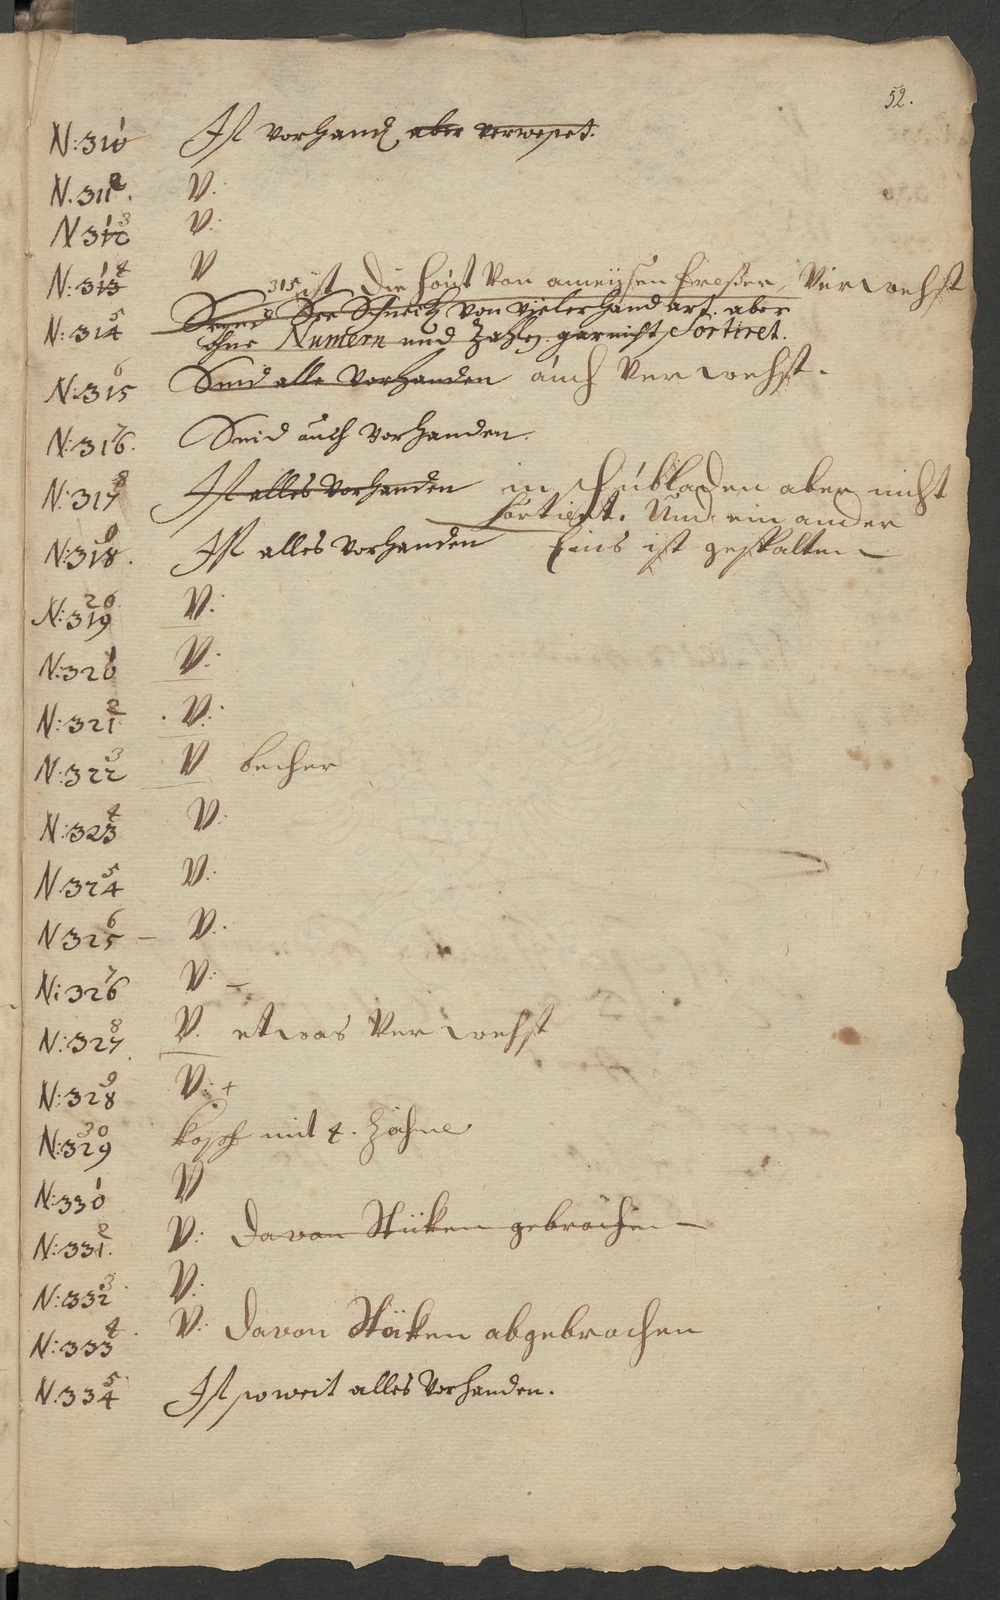 52.
N: 311 Ist vorhand aber verwehset.
N. 312. V.
N 313 V.
N: 314 V
315 ist die haut Von ameysen freßer, Verwehst
N: 315 Seynd See Schneck von vieler hand art. aber
ohne Numern und Zahlen gar nicht Sortiret.
N: 316 Seid alle Vorhanden auch Verwehst.
N: 317. Seid auch Vorhanden.
N: 318 Ist alles Vorhanden in schubladen aber nicht
sortiert. Und ein ander
N: 319. Ist alles Vorhanden Eins ist gespalten
N: 320 V.
N: 321 V.
N: 322 V.
N: 323 V becher
N: 324 V.
N 325 V.
N 326 V.
N: 327 V.
N: 328 V. etwas Verwehst
N: 329 V: +
N: 330 Kopf mit 4. Zähne
N: 331 V
N: 332. V: davon Stüken gebrochen
N: 333 V.
N: 334 V: davon Stüken abgebrochen
N. 335 Ist soweit alles Vorhanden.